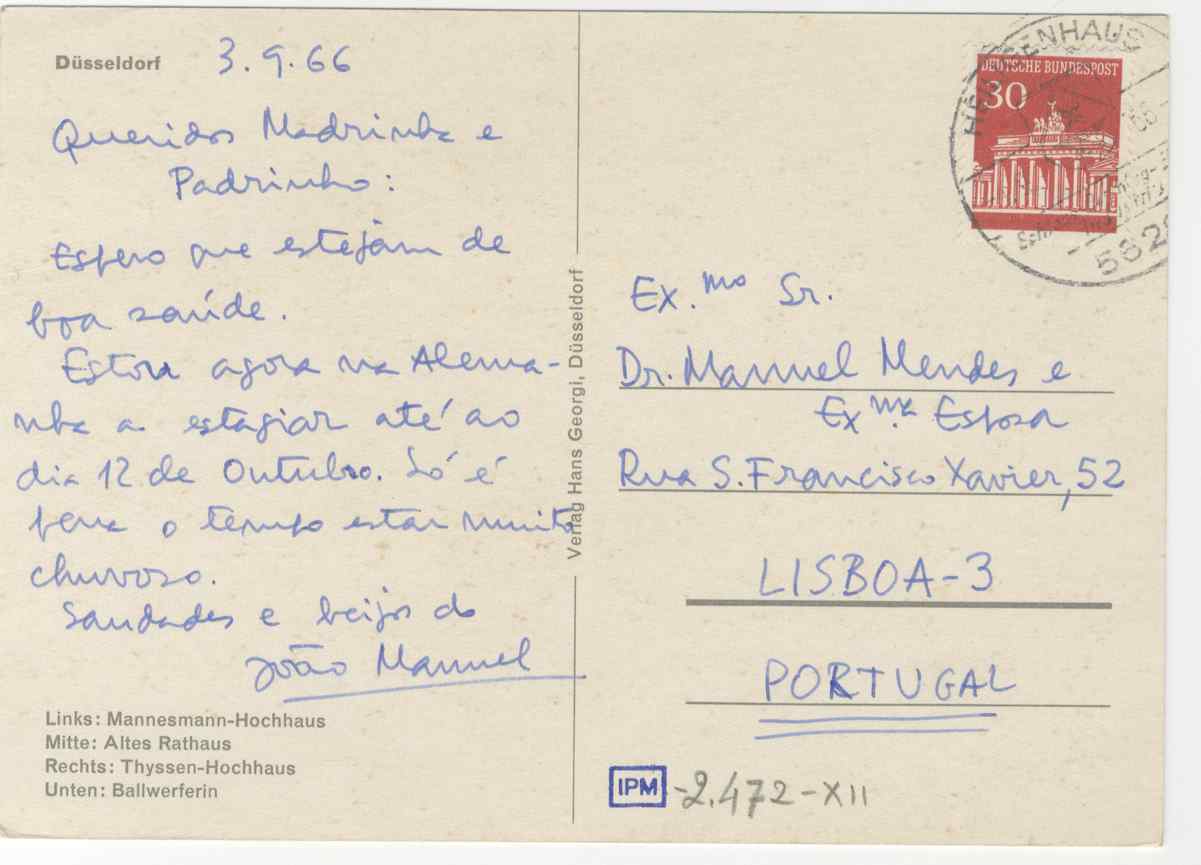 Düsseldorf 3.9.66
Queridos Madrinha e
Padrinho:
Espero que estejam de
boa saúde.
Estou agora na Alema-
nha a estagiar até ao
dia 12 de Outubro. Só é
pena o tempo estar muito
chuvoso.
Saudades e beijos do
João Manuel
Links: Mannesmann-Hochhaus
Mitte: Altes Rathaus
Rechts: Thyssen-Hochhaus
Unten: Ballwerferin
Verlag Hans Georgi, Düsseldorf
DEUTSCHE BUNDESPOST
30
582
Ex.mo Sr.
Dr. Manuel Mendes e
Ex.ma Esposa
Rua S. Francisco Xavier, 52
LISBOA-3
PORTUGAL
IPM -2.472-XII